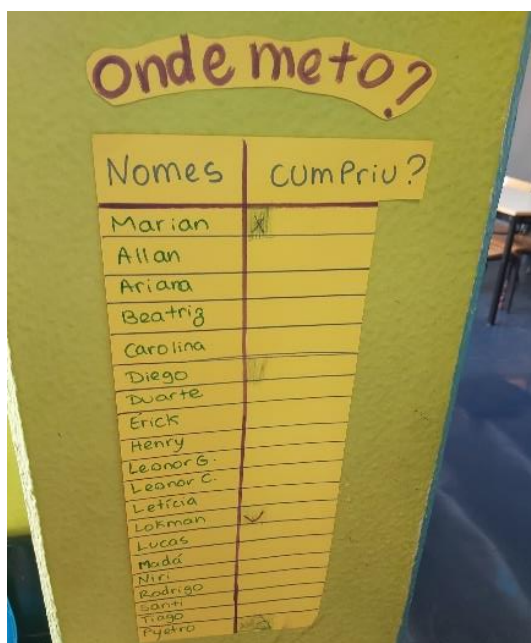 Onde meto?
Nomes cumpriu?
Marian X
Allan
Ariana
Beatriz
Carolina
Diego
Duarte
Erick
Henry
Leonor G.
Leonor C.
Letícia
Lokman
Lucas
Madá
Niri
Rodrigo
Santi
Tiago
Pyetro